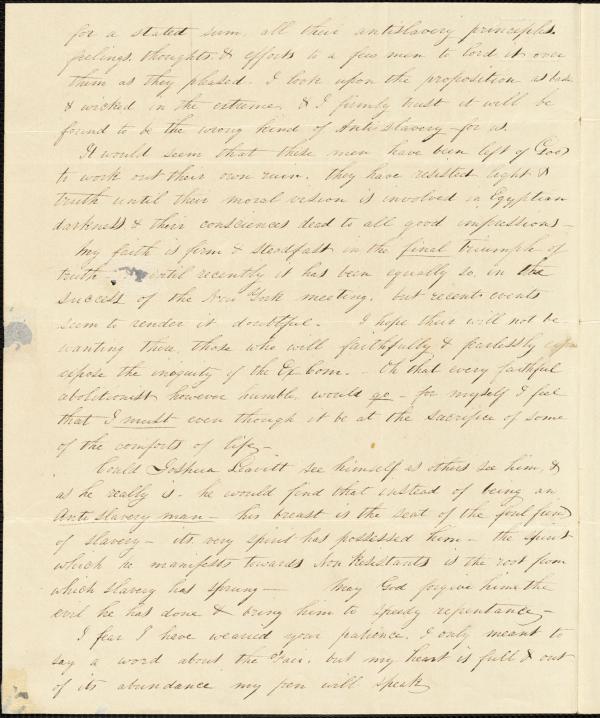 for a stated sum, all their antislavery principles,
feelings, thoughts & efforts to a few men to lord it over
them as they pleased. I look upon the proposition as base
& wicked in the extreme, & I firmly trust it will be
found to be the wrong kind of Anti slavery for us.
It would seem that these men have been left of God
to work out their own ruin. they have resisted light &
truth until their moral vision is involved in Egyptian
darkness & their consciences dead to all good impressions –
My faith is firm & steadfast in the final triumph of
truth – until recently it has been equally so, in the
success of the New York meeting. but recent events
seem to render it doubtful. I hope their will not be
wanting there, those who will faithfully & fearlessly
expose the iniquity of the Ex Com. – Oh that every faithful
abolitionist however humble, would go – for myself I feel
that I must even though it be at the sacrifice of some
of the comforts of life –
Could Joshua Leavitt see himself as others see him, &
as he really is – he would find that instead of being an
Anti slavery man – his breast is the seat of the foul fiend
of slavery – its very spirit has possessed him – the spirit
which he manifests towards Non Resistants is the root from
which slavery has sprung — May God forgive him the
evil he has done & bring him to speedy repentance –
I fear I have wearied your patience. I only meant to
say a word about the Fair. but my heart is full & out
of its abundance my pen will speak